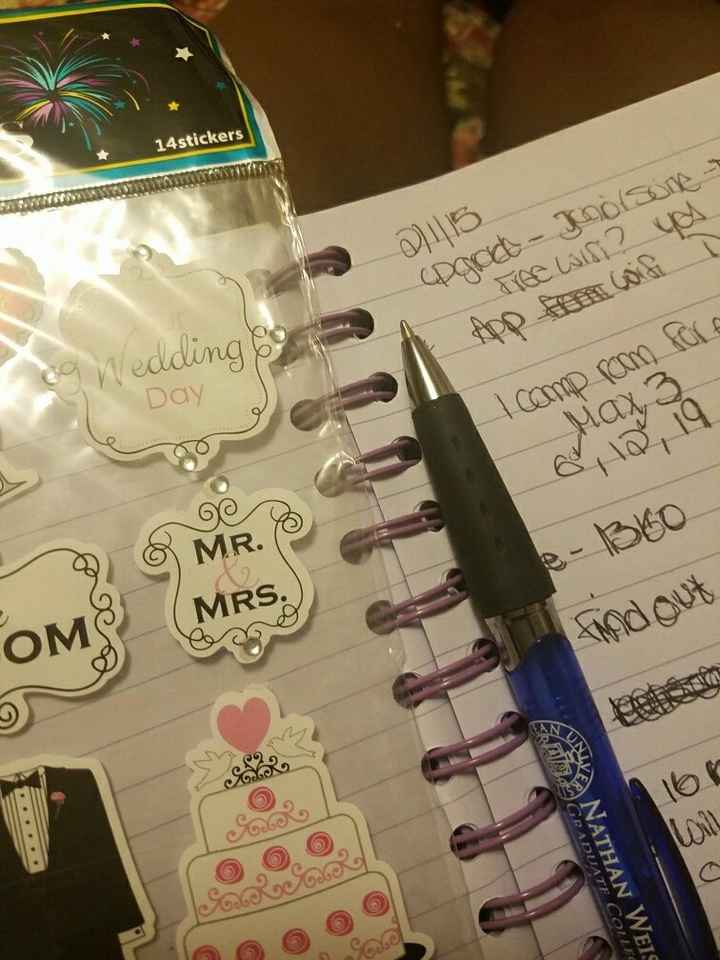 14stickers
Wedding
Day
MR.
&
MRS.
OOM
2/1/15
upgrade -
free wifi? yes
App wifi
1 comp room for
Max 3
6, 12, 19
e - 1360
find out
16
will
EAN UNIVERS
NATHAN WEIS
GRADUATE COLLE